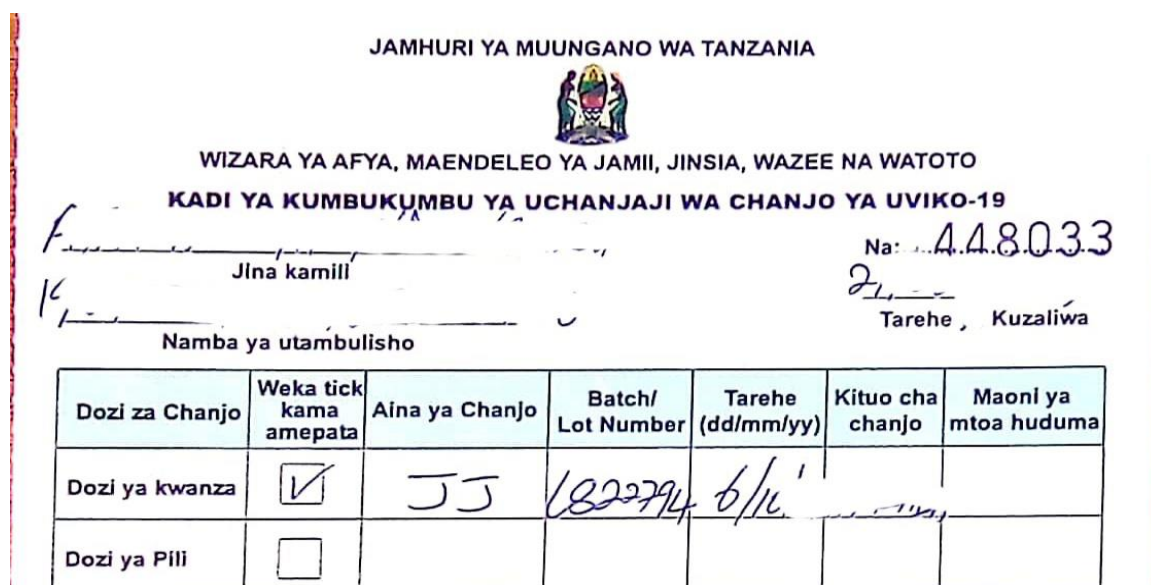 JAMHURI YA MUUNGANO WA TANZANIA
WIZARA YA AFYA, MAENDELEO YA JAMII, JINSIA, WAZEE NA WATOTO
KADI YA KUMBUKUMBU YA UCHANJAJI WA CHANJO YA UVIKO-19
Na: 448033
Jina kamili
Tarehe , Kuzaliwa
Namba ya utambulisho
Dozi za Chanjo Weka tick kama amepata Aina ya Chanjo Batch/ Lot Number Tarehe (dd/mm/yy) Kituo cha chanjo Maoni ya mtoa huduma
Dozi ya kwanza JJ 1822794
Dozi ya Pili